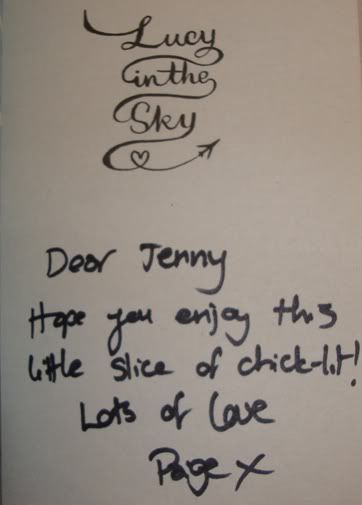 Lucy
in the
Sky
Dear Jenny
Hope you enjoy this
little slice of chick-lit!
Lots of love
Paige X